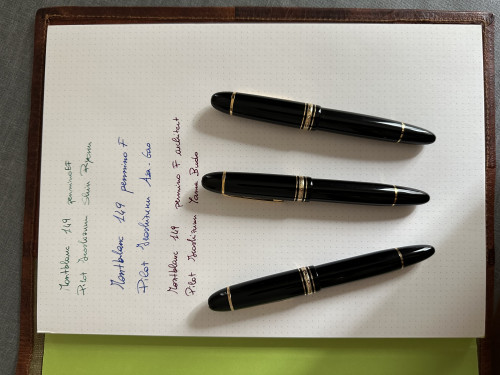 Montblanc 149 pennino EF
Pilot Iroshizuku Shin Ryoku
Montblanc 149 pennino F
Pilot Iroshizuku Asa-Gao
Montblanc 149 pennino F architect
Pilot Iroshizuku Yama Budo